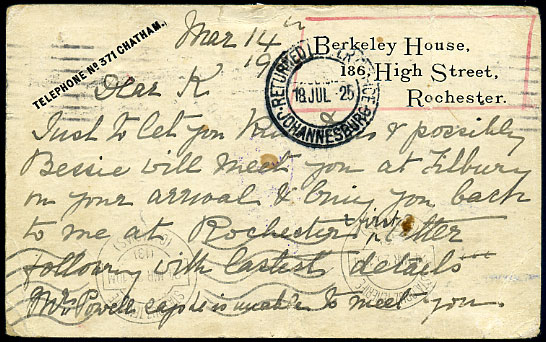 TELEPHONE Nº 371 CHATHAM.
Berkeley House,
186, High Street,
Rochester.
Mar 14th
19
Dear K
RETURNED LETTER OFFICE
18 JUL 25
JOHANNESBURG
Just to let you know & possibly
Bessie will meet you at Tilbury
on your arrival & bring you back
to me at Rochester & first letter
following with lastest details
Mrs Powell says is unable to meet you.